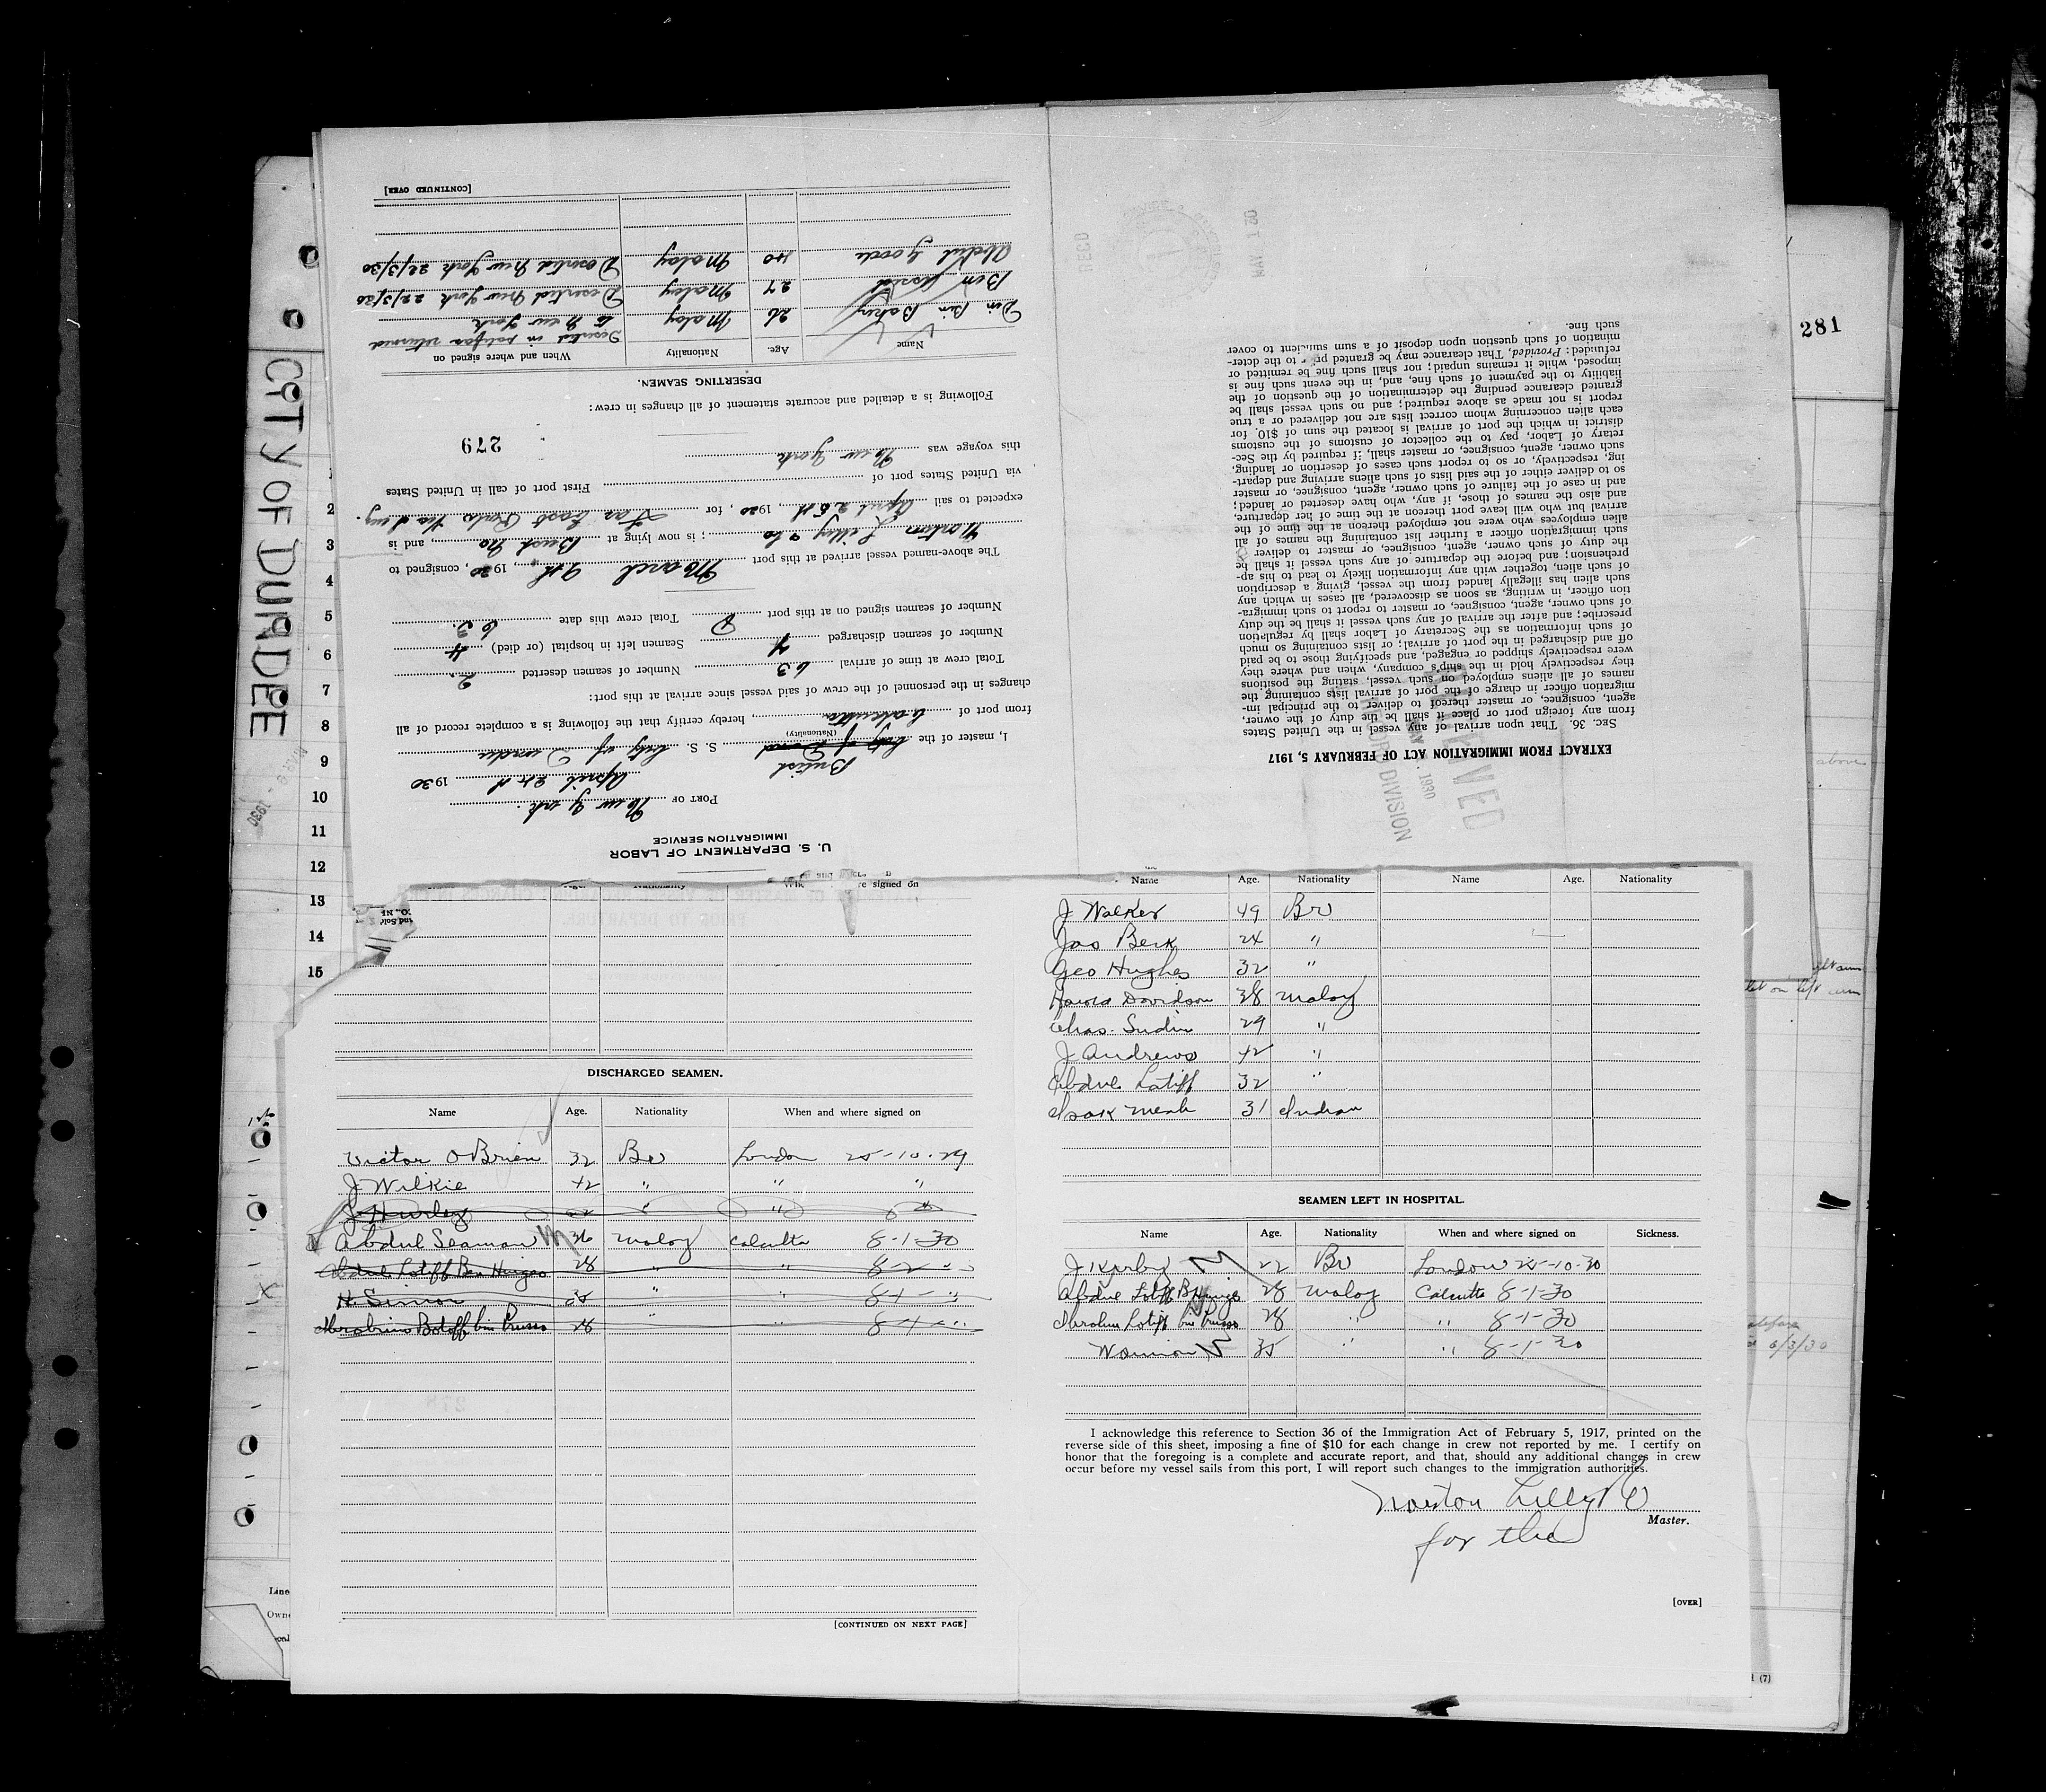 U. S. DEPARTMENT OF LABOR
IMMIGRATION SERVICE
PORT OF New York.
April 24th 1930
British
I, master of the S. S. City of Dundee
(Nationality)
from port of Calcutta, hereby certify that the following is a complete record of all
changes in the personnel of the crew of said vessel since arrival at this port:
Total crew at time of arrival 63 Number of seamen deserted 2.
Number of seamen discharged Seamen left in hospital (or died) 4
Number of seamen signed on at this port 8 Total crew this date
The above-named vessel arrived at this port March 9th, 1930, consigned to
Norton Lilly & Co; is now lying at Bush No, and is
expected to sail April 25th, 1930, for Far East Ports
via United States port of First port of call in United States
this voyage was New York
279
Following is a detailed and accurate statement of all changes in crew:
DESERTING SEAMEN.
Name Age. Nationality When and where signed on
Din Bin Bakin 26 Malay Deserted in Halifax returned
to New York
Ben Jassid 27 Malay Deserted New York 22/3/30
Abdul Goode 40 Malay Deserted New York 22/3/30
[CONTINUED OVER]
EXTRACT FROM IMMIGRATION ACT OF FEBRUARY 5, 1917
SEC. 36. That upon arrival of any vessel in the United States
from any foreign port or place it shall be the duty of the owner,
agent, consignee, or master thereof to deliver to the principal im-
migration officer in charge of the port of arrival lists containing the
names of all aliens employed on such vessel, stating the positions
they respectively hold in the ship's company, when and where they
were respectively shipped or engaged, and specifying those to be paid
off and discharged in the port of arrival; or lists containing so much
of such information as the Secretary of Labor shall by regulation
prescribe; and after the arrival of any such vessel it shall be the duty
of such owner, agent, consignee, or master to report to such immigra-
tion officer, in writing, as soon as discovered, all cases in which any
such alien has illegally landed from the vessel, giving a description
of such alien, together with any information likely to lead to his ap-
prehension; and before the departure of any such vessel it shall be
the duty of such owner, agent, consignee, or master to deliver to
such immigration officer a further list containing the names of all
alien employees who were not employed thereon at the time of the
arrival but who will leave port thereon at the time of her departure,
and also the names of those, if any, who have deserted or landed;
and in case of the failure of such owner, agent, consignee, or master
so to deliver either of the said lists of such aliens arriving and depart-
ing, respectively, or so to report such cases of desertion or landing,
such owner, agent, consignee, or master shall, if required by the Sec-
retary of Labor, pay to the collector of customs of the customs
district in which the port of arrival is located the sum of $10 for
each alien concerning whom correct lists are not delivered or a true
report is not made as above required; and no such vessel shall be
granted clearance pending the determination of the question of the
liability to the payment of such fine, and, in the event such fine is
imposed, while it remains unpaid; nor shall such fine be remitted or
refunded: Provided, That clearance may be granted prior to the deter-
mination of such question upon deposit of a sum sufficient to cover
such fine.
REC'D
MAY 1 30
281
CITY OF DUNDEE
1930
1
2
3
4
5
6
7
8
9
10
11
12
13
14
15
Name Age. Nationality When and where signed on
DISCHARGED SEAMEN.
Name Age. Nationality When and where signed on
Victor O'Brien 32 Br London 25-10-29
J Wilkie 42 " " "
J Hurley 22 " "
Abdul Seaman 36 Malay Calcutta 8-1-30
Abdul Latiff Ben Hinges 28 " " 8-2- "
H. Simon 35 " " 8-1- "
Ibrahim Botoff bin Prusso 28 " " 8-1- "
[CONTINUED ON NEXT PAGE]
Name Age. Nationality Name Age. Nationality
J Walker 49 Br
Jas Berk 24 "
Geo Hughes 32 "
Harold Davidson 38 Malay
Chas. Sudin 29 "
J Andrews 42 "
Abdul Latiff 32 "
Isak Meah 31 Indian
SEAMEN LEFT IN HOSPITAL.
Name Age. Nationality When and where signed on Sickness.
J Kurby 22 Br London 25-10-30
Abdul Latiff B Hinges 28 Malay Calcutta 8-1-30
Ibrahim Latiff bin Prusso 28 " " 8-1-30
35 " " 8-1-30
I acknowledge this reference to Section 36 of the Immigration Act of February 5, 1917, printed on the
reverse side of this sheet, imposing a fine of $10 for each change in crew not reported by me. I certify on
honor that the foregoing is a complete and accurate report, and that, should any additional changes in crew
occur before my vessel sails from this port, I will report such changes to the immigration authorities.
Norton Lilly & Co
Master.
for the
[OVER]